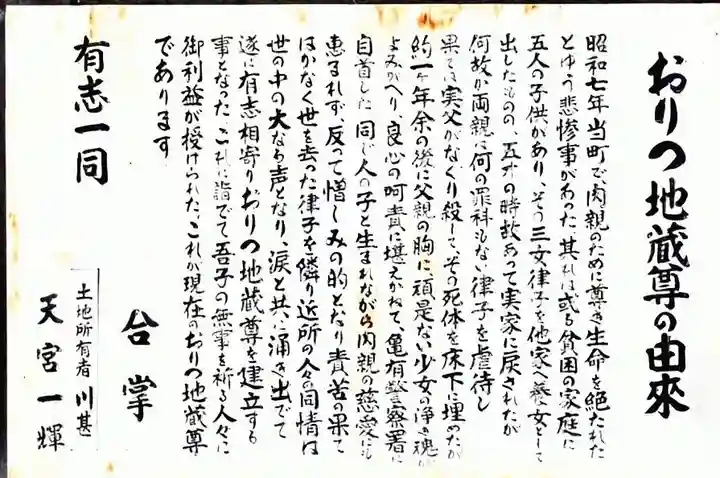 おりつ地蔵尊の由來
昭和七年当町で肉親のために尊き生命を絶たれた
とゆう悲惨事があった 其れは或る貧困の家庭に
五人の子供があり、そう三女律子を他家へ養女として
出したものの、五才の時故あって実家に戻されたが
何故か両親は何の罪科もない律子を虐待し
果ては実父がなぐり殺して、その死体を床下に埋めたが
約一ヶ年余の後に父親の胸に頑是ない少女の浄き魂が
よみがへり 良心の呵責に堪えかねて、亀有警察署に
自首した 同じ人の子と生まれながら肉親の慈愛にも
恵まれず、反って憎しみの的となり責苦の果て
はかなく世を去った律子を隣り近所の人の同情は
世の中の大なる声となり、涙と共に涌き出でて
遂に有志相寄りおりつ地蔵尊を建立する
事となった これに詣でて吾子の無事を祈る人々に
御利益が授けられた、これが現在のおりつ地蔵尊
であります
有志一同
合掌
土地所有者 川甚
天宮一輝